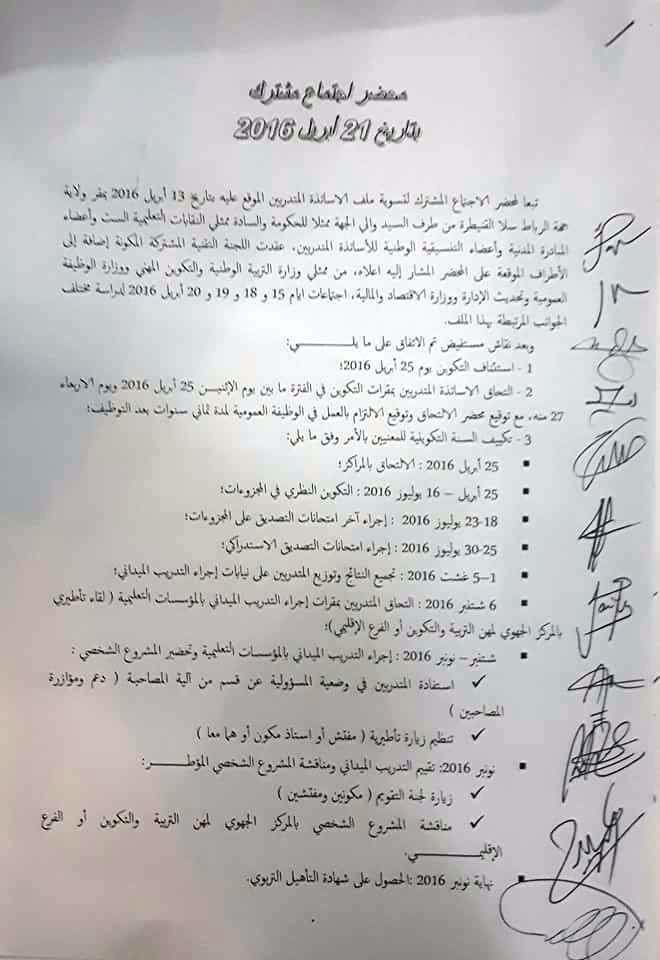 محضر اجتماع مشترك
بتاريخ 21 أبريل 2016
تبعا لمحضر الاجتماع المشترك لتسوية ملف الاساتذة المتدربين الموقع عليه بتاريخ 13 أبريل 2016 بمقر ولاية
جهة الرباط سلا القنيطرة من طرف السيد والي الجهة ممثلا للحكومة والسادة ممثلي النقابات التعليمية الست وأعضاء
المبادرة المدنية وأعضاء التنسيقية الوطنية للأساتذة المتدربين، عقدت اللجنة التقنية المشتركة المكونة إضافة إلى
الأطراف الموقعة على المحضر المشار إليه اعلاه، من ممثلي وزارة التربية الوطنية والتكوين المهني ووزارة الوظيفة
العمومية وتحديث الإدارة ووزارة الاقتصاد والمالية، اجتماعات ايام 15 و 18 و 19 و 20 أبريل 2016 لدراسة مختلف
الجوانب المرتبطة بهذا الملف.
وبعد نقاش مستفيض تم الاتفاق على ما يلـــــي:
1 - استئناف التكوين يوم 25 أبريل 2016؛
2 - التحاق الاساتذة المتدربين بمقرات التكوين في الفترة ما بين يوم الإثنين 25 أبريل 2016 ويوم الاربعاء
27 منه، مع توقيع محضر الالتحاق وتوقيع الالتزام بالعمل في الوظيفة العمومية لمدة ثماني سنوات بعد التوظيف؛
3 - تكييف السنة التكوينية للمعنيين بالأمر وفق ما يلي:
▪ 25 أبريل 2016 : الالتحاق بالمراكز؛
▪ 25 أبريل – 16 يوليوز 2016 : التكوين النظري في المجزوءات؛
▪ 18-23 يوليوز 2016 : إجراء آخر امتحانات التصديق على المجزوءات؛
▪ 25-30 يوليوز 2016 : إجراء امتحانات التصديق الاستدراكي؛
▪ 1–5 غشت 2016 : تجميع النتائج وتوزيع المتدربين على نيابات إجراء التدريب الميداني؛
▪ 6 شتنبر 2016 : التحاق المتدربين بمقرات إجراء التدريب الميداني بالمؤسسات التعليمية ( لقاء تأطيري
بالمركز الجهوي لمهن التربية والتكوين أو الفرع الإقليمي)؛
▪ شتنبر – نونبر 2016 : إجراء التدريب الميداني بالمؤسسات التعليمية وتحضير المشروع الشخصي :
✓ استفادة المتدربين في وضعية المسؤولية عن قسم من آلية المصاحبة ( دعم ومؤازرة
المصاحبين )
✓ تنظيم زيارة تأطيرية ( مفتش أو استاذ مكون أو هما معا )
▪ نونبر 2016: تقييم التدريب الميداني ومناقشة المشروع الشخصي المؤطـــــر:
✓ زيارة لجنة التقويم ( مكونين ومفتشين )
✓ مناقشة المشروع الشخصي بالمركز الجهوي لمهن التربية والتكوين أو الفرع
الإقليمـــــــي.
▪ نهاية نونبر 2016 :الحصول على شهادة التأهيل التربوي.